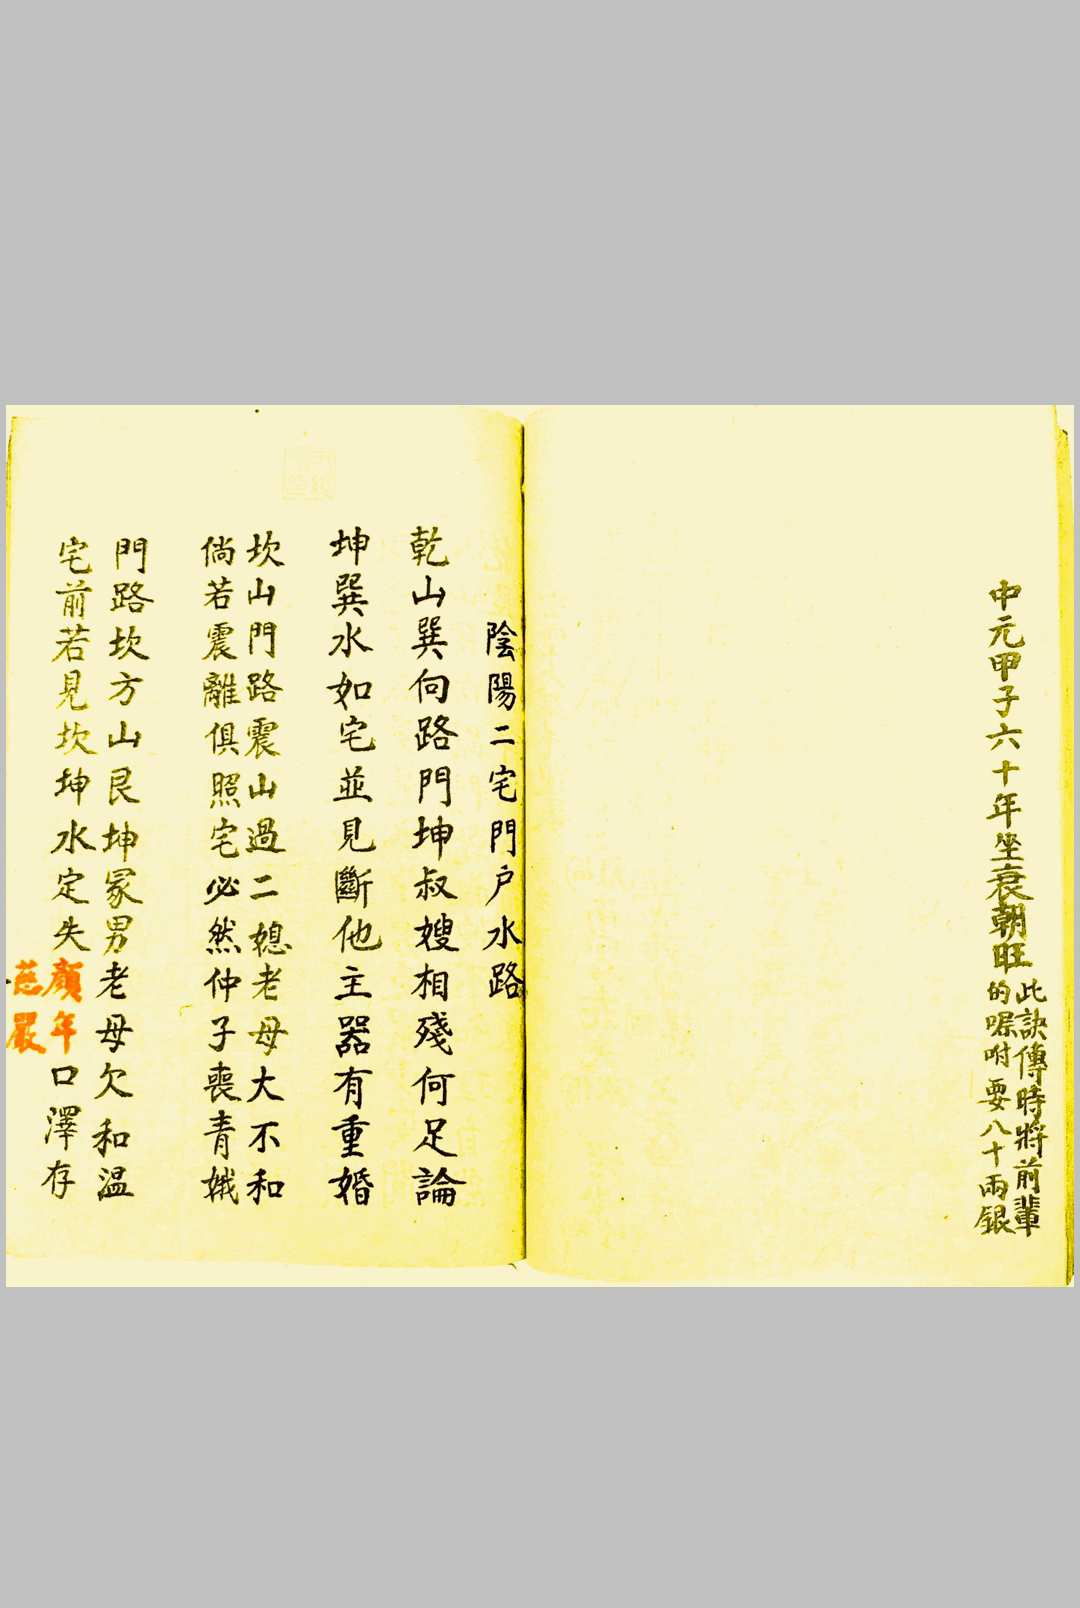 中元甲子六十年坐衰朝旺
此訣傳時將前輩
的囑咐要八十兩銀
陰陽二宅門户水路
乾山巽向路門坤叔嫂相殘何足論
坤巽水如宅並見斷他主器有重婚
坎山門路震山過二媳老母大不和
倘若震離俱照宅必然仲子喪青娥
門路坎方山艮坤冢男老母欠和温
宅前若見坎坤水定失顏年口澤存
慈嚴